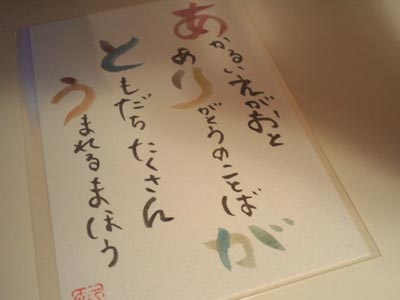 あかるいえがおと
ありがとうのことばが
ともだちたくさん
うまれるまほう